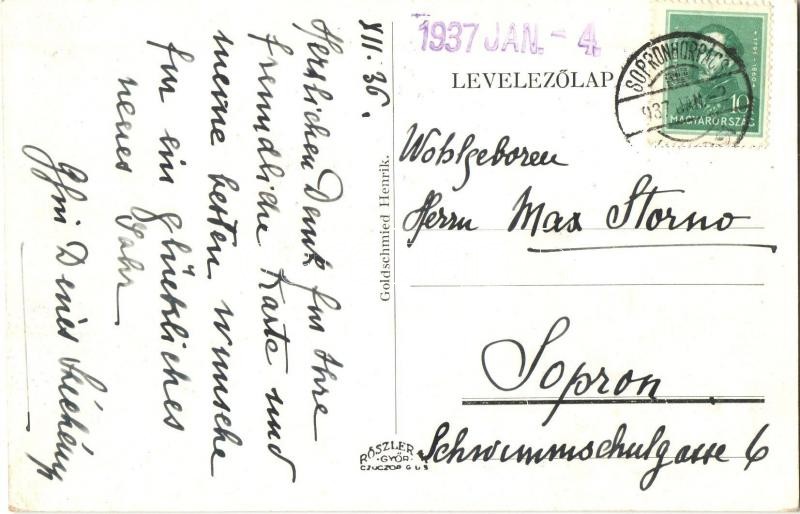 XII. 36.
Herzlichen Dank für Ihre
freundliche Karte und
meine besten Wünsche
für ein glückliches
neues Jahr
Gfin Denes Széchényi
Goldschmied Henrik.
1937 JAN. - 4.
LEVELEZŐLAP
SOPRONHORPÁCS
937 JAN. 2
10
MAGYARORSZÁG
1791-1860
Wohlgeboren
Herrn Max Storno
Sopron
Schwimmschulgasse 6
RÖSZLER K
GYŐR
CZUCZOR G U 5